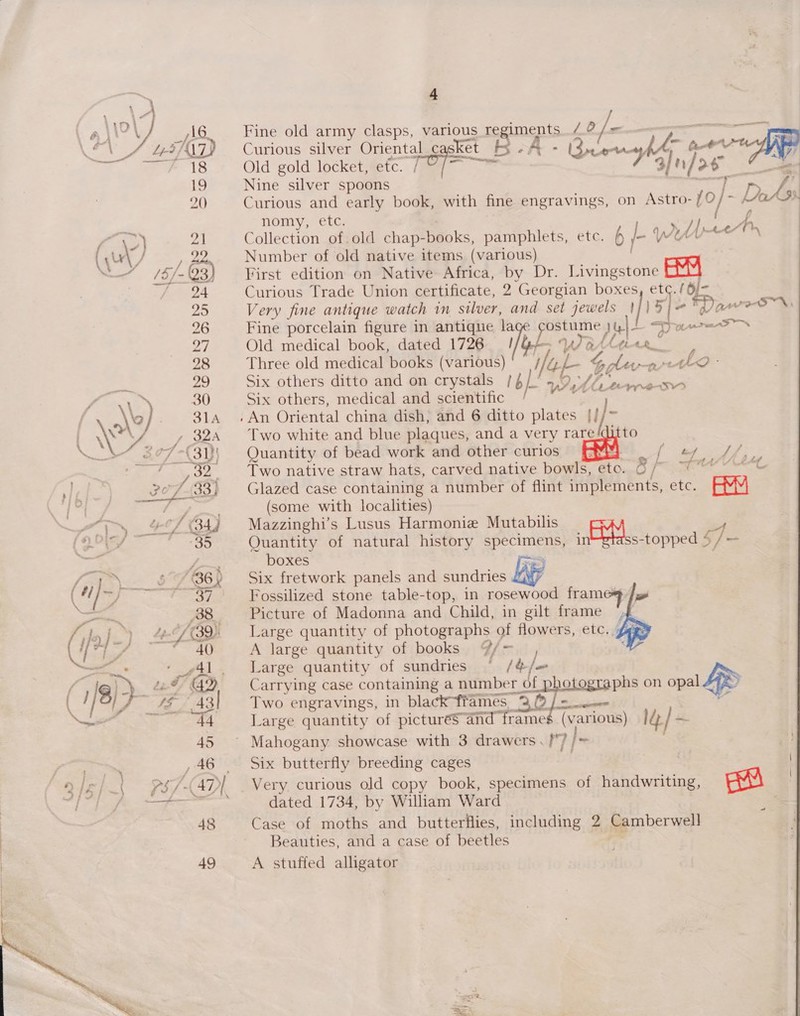 4
16 Fine old army clasps, various regiments
17 Curious silver Oriental casket
18 Old gold locket, etc. 3/11/26
19 Nine silver spoons
20 Curious and early book, with fine engravings, on Astro- 10/-
nomy, etc.
21 Collection of old chap-books, pamphlets, etc. 6/-
22 Number of old native items (various)
15/- 23 First edition on Native Africa, by Dr. Livingstone
24 Curious Trade Union certificate, 2 Georgian boxes, etc.
25 Very fine antique watch in silver, and set jewels
26 Fine porcelain figure in antique lace costume
27 Old medical book, dated 1726
28 Three old medical books (various)
29 Six others ditto and on crystals
30 Six others, medical and scientific
31A An Oriental china dish, and 6 ditto plates 11/-
32A Two white and blue plaques, and a very rare ditto
31 Quantity of bead work and other curios
32 Two native straw hats, carved native bowls, etc.
33 Glazed case containing a number of flint implements, etc.
(some with localities)
34 Mazzinghi's Lusus Harmoniæ Mutabilis
35 Quantity of natural history specimens, in glass-topped 5/-
boxes
36 Six fretwork panels and sundries
37 Fossilized stone table-top, in rosewood frame
38 Picture of Madonna and Child, in gilt frame
39 Large quantity of photographs of flowers, etc.
40 A large quantity of books
41 Large quantity of sundries
42 Carrying case containing a number of photographs on opal
43 Two engravings, in black frames
44 Large quantity of pictures and frames (various) 14/-
45 Mahogany showcase with 3 drawers 17/-
46 Six butterfly breeding cages
47 Very curious old copy book, specimens of handwriting,
dated 1734, by William Ward
48 Case of moths and butterflies, including 2 Camberwell
Beauties, and a case of beetles
49 A stuffed alligator